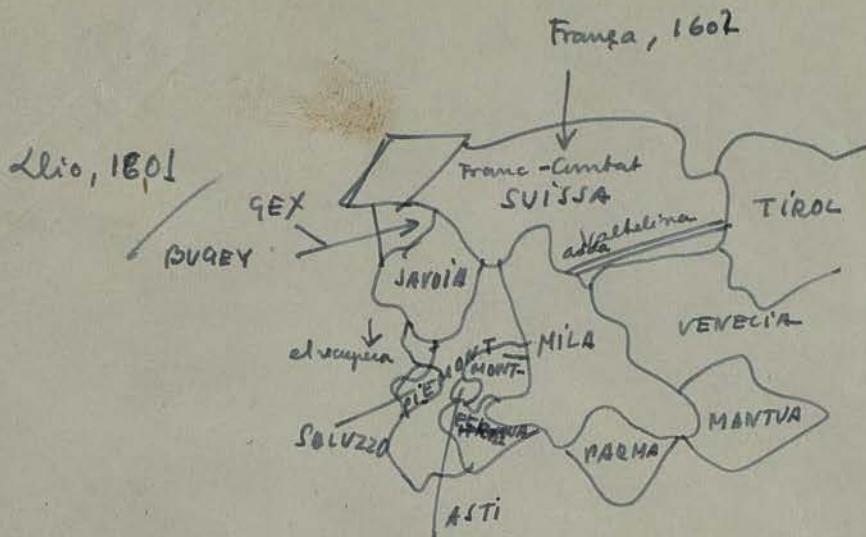 França, 1602
Llio, 1601
Franc-Comtat
SUÏSSA
GEX
BUGEY
TIROL
Valtelina
adda
SAVOIA
VENECIA
el recupera
PIEMONT
MONT-
MILA
SOLUZZO
PARMA
MANTUA
ASTI